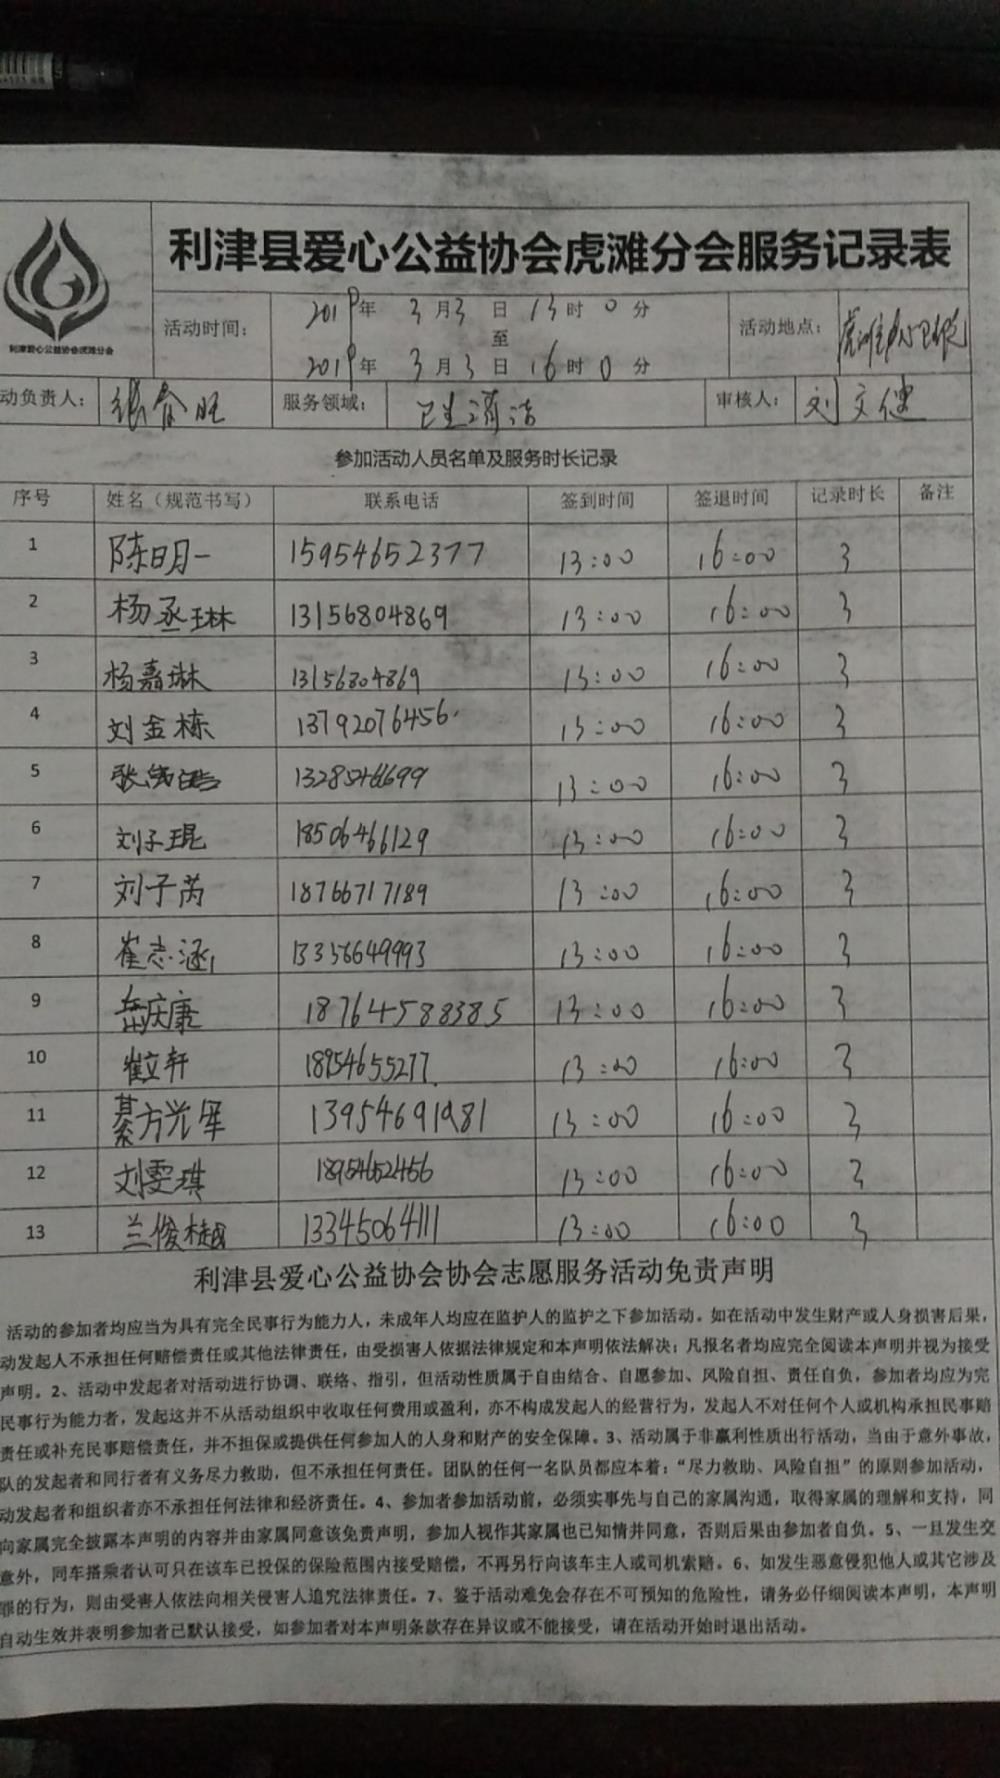 利津县爱心公益协会虎滩分会服务记录表
利津爱心公益协会虎滩分会
活动时间： 2019年 3月3日 13时0分
至
2019年 3月3日 16时0分
活动地点：
动负责人： 张春旺 服务领域： 卫生清洁 审核人： 刘文健
参加活动人员名单及服务时长记录
序号 姓名（规范书写） 联系电话 签到时间 签退时间 记录时长 备注
1 陈明一 15954652377 13:00 16:00 3
2 杨丞琳 13156804869 13:00 16:00 3
3 杨嘉琳 13156804869 13:00 16:00 3
4 刘金栋 13792076456 13:00 16:00 3
5 13285466699 13:00 16:00 3
6 刘子琨 18506466129 13:00 16:00 3
7 刘子芮 18766717189 13:00 16:00 3
8 崔志涵 13356649993 13:00 16:00 3
9 岳庆康 18764588385 13:00 16:00 3
10 崔立轩 18954655277 13:00 16:00 3
11 13954691981 13:00 16:00 3
12 刘雯琪 18954652456 13:00 16:00 3
13 兰俊樾 13345064111 13:00 16:00 3
利津县爱心公益协会协会志愿服务活动免责声明
活动的参加者均应当为具有完全民事行为能力人，未成年人均应在监护人的监护之下参加活动。如在活动中发生财产或人身损害后果，
动发起人不承担任何赔偿责任或其他法律责任，由受损害人依据法律规定和本声明依法解决；凡报名者均应完全阅读本声明并视为接受
声明。2、活动中发起者对活动进行协调、联络、指引，但活动性质属于自由结合、自愿参加、风险自担、责任自负，参加者均应为完
民事行为能力者，发起这并不从活动组织中收取任何费用或盈利，亦不构成发起人的经营行为，发起人不对任何个人或机构承担民事赔
责任或补充民事赔偿责任，并不担保或提供任何参加人的人身和财产的安全保障。3、活动属于非赢利性质出行活动，当由于意外事故，
队的发起者和同行者有义务尽力救助，但不承担任何责任。团队的任何一名队员都应本着：“尽力救助、风险自担”的原则参加活动，
动发起者和组织者亦不承担任何法律和经济责任。4、参加者参加活动前，必须实事先与自己的家属沟通，取得家属的理解和支持，同
向家属完全披露本声明的内容并由家属同意该免责声明，参加人视作其家属也已知情并同意，否则后果由参加者自负。5、一旦发生交
意外，同车搭乘者认可只在该车已投保的保险范围内接受赔偿，不再另行向该车主人或司机索赔。6、如发生恶意侵犯他人或其它涉及
罪的行为，则由受害人依法向相关侵害人追究法律责任。7、鉴于活动难免会存在不可预知的危险性，请务必仔细阅读本声明，本声明
自动生效并表明参加者已默认接受，如参加者对本声明条款存在异议或不能接受，请在活动开始时退出活动。